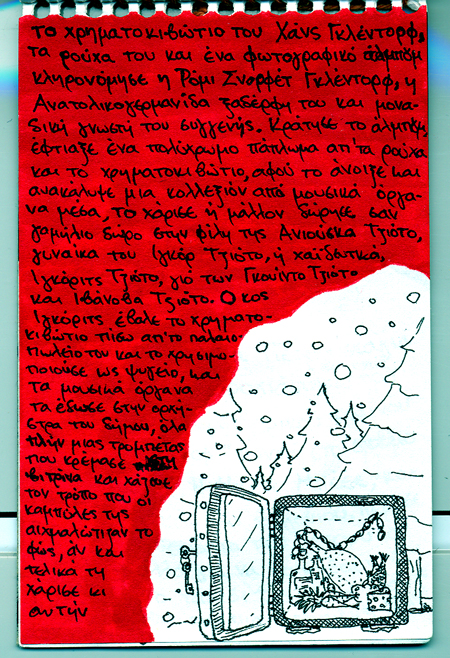 το χρηματοκιβώτιο του Χάνς Γκλέντορφ,
τα ρούχα του και ένα φωτογραφικό άλμπουμ
κληρονόμησε η Ρόμι Σνορφέτ Γκλέντορφ, η
Ανατολικογερμανίδα ξαδέρφη του και μονα-
δική γνωστή του συγγενής. Κράτησε το άλμπουμ,
έφτιαξε ένα πολύχρωμο πάπλωμα απ'τα ρούχα
και το χρηματοκιβώτιο, αφού το άνοιξε και
ανακάλυψε μια κολλεξιόν από μουσικά όργα-
να μέσα, το χάρισε ή μάλλον δώρησε σαν
γαμήλιο δώρο στην φίλη της Ανιούσκα Τζιότο,
γυναίκα του Ιγκόρ Τζιότο, ή χαϊδευτικά,
Ιγκόριτς Τζιότο, γιό των Γκουίντο Τζιότο
και Ιβάνοβα Τζιότο. Ο κος
Ιγκόριτς έβαλε το χρηματο-
κιβώτιο πίσω απ'το παλαιο-
πωλείο του και το χρησιμο-
ποιούσε ως ψυγείο, και
τα μουσικά όργανα
τα έδωσε στην ορχή-
στρα του δήμου, όλα
πλήν μιας τρομπέτας
που κρέμασε
βιτρίνα και χάζευε
τον τρόπο που οι
καμπύλες της
αιχμαλώτιζαν το
φώς, αν και
τελικά τη
χάρισε κι
αυτήν